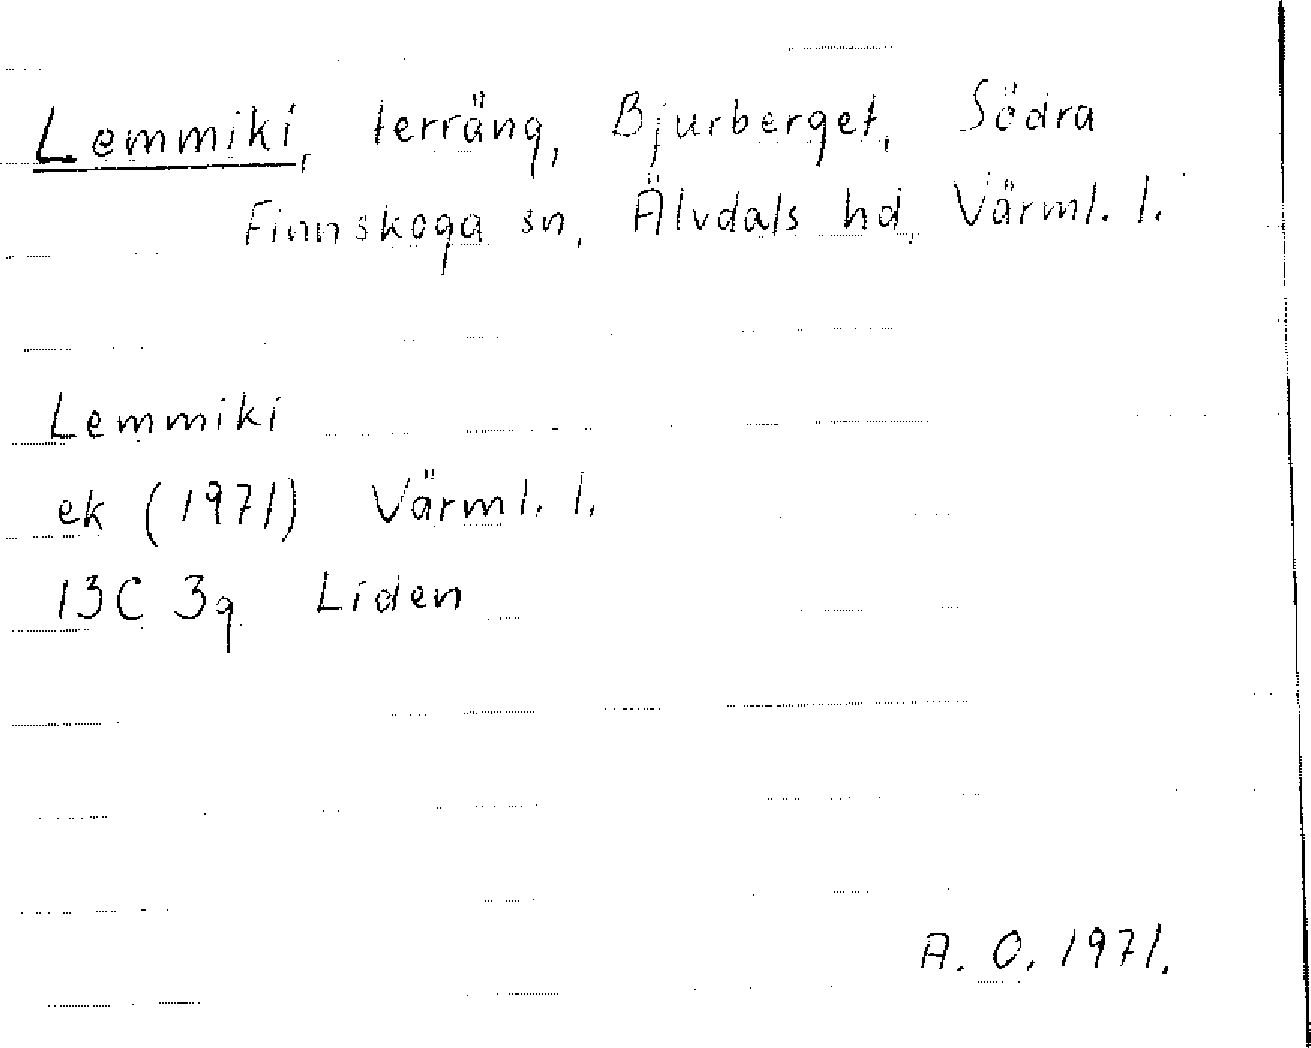 Lemmiki, terräng, Bjurberget, Södra
Finnskoga sn, Älvdals hd, Värml. l.
Lemmiki
ek (1971) Värml. l.
13C 3g Liden
A. O. 1971.